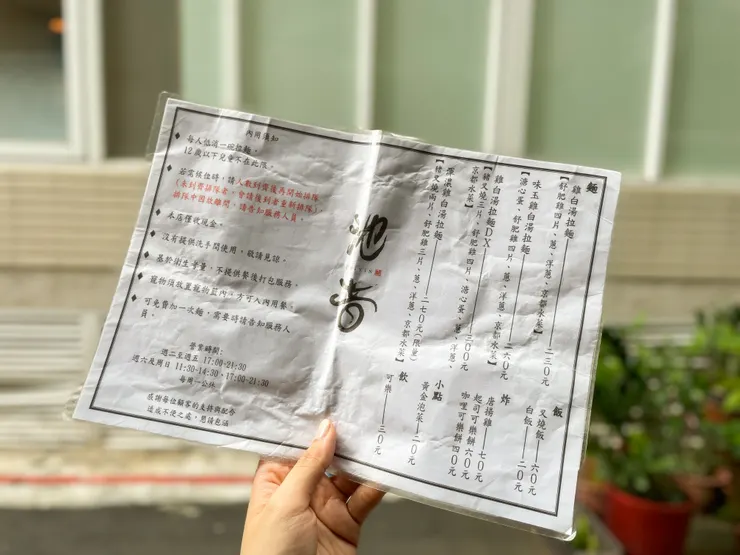 麵
雞白湯拉麵——二三０元
【舒肥雞四片、蔥、洋蔥、京都水菜】
味玉雞白湯拉麵——二六０元
【溏心蛋、舒肥雞四片、蔥、洋蔥、京都水菜】
雞白湯拉麵DX——三００元
【豬叉燒三片、舒肥雞四片、溏心蛋、蔥、洋蔥、
京都水菜】
濃雞白湯拉麵——二七０元(限量)
【豬叉燒兩片、舒肥雞三片、蔥、洋蔥、京都水菜】
飯
叉燒飯——六０元
白飯——二０元
炸
唐揚雞——七０元
起司可樂餅六０元
咖哩可樂餅四０元
小點
黃金泡菜——二０元
飲
可樂——三０元
池
麵
內用須知
◆ 每人低消一碗拉麵，
12歲以下兒童不在此限。
◆ 若需候位時，請人數到齊後再開始排隊
(未到齊排隊者，會請後到者重新排隊)
排隊中因故離開，請告知服務人員。
◆ 本店僅收現金。
◆ 沒有提供洗手間使用，敬請見諒。
◆ 基於衛生考量，不提供餐後打包服務。
◆ 寵物須放置寵物籃內，方可入內用餐。
◆ 可免費加一次麵，需要時請告知服務人
員。
營業時間:
週二至週五 17:00-21:30
週六及周日 11:30-14:30，17:00-21:30
每周一公休
感謝每位顧客的支持與配合
造成不便之處，懇請包涵